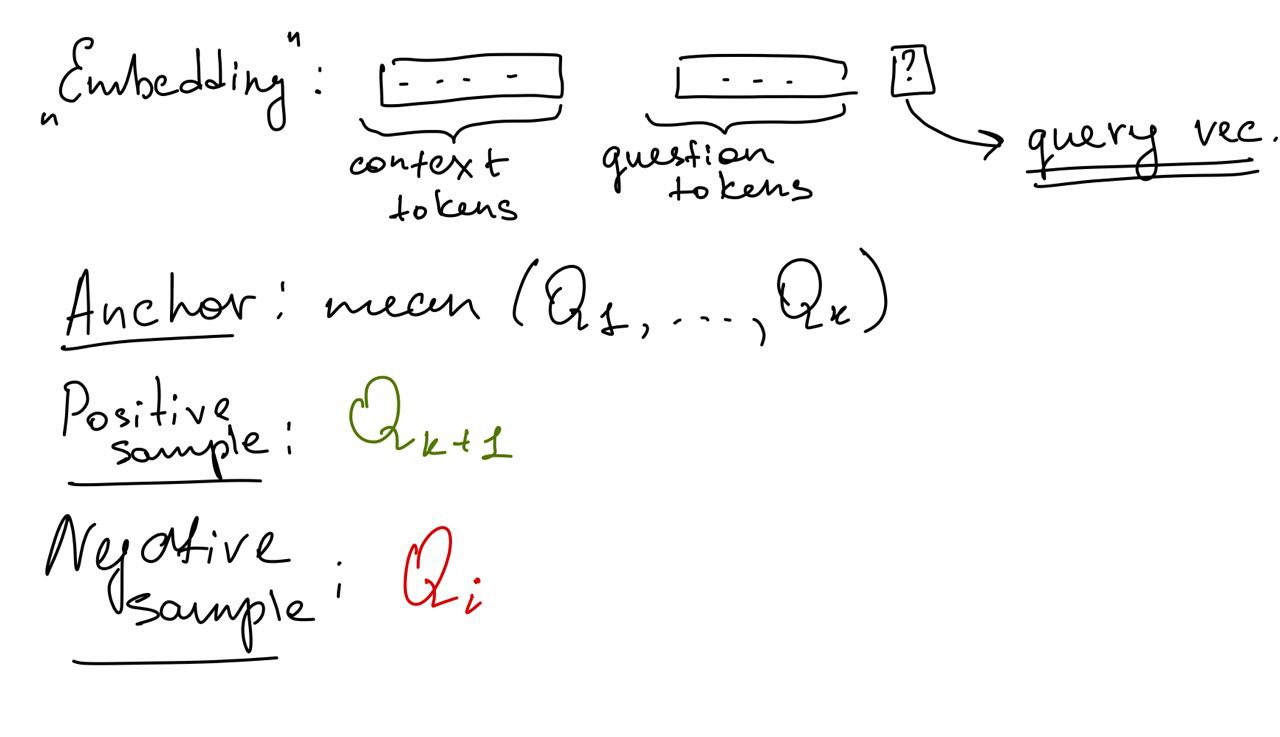 „Embedding": - - - - - - - ?
context tokens
question tokens
query vec.
Anchor: mean (Q₁, ..., Qₖ)
Positive
sample: Qₖ₊₁
Negative
sample: Qᵢ